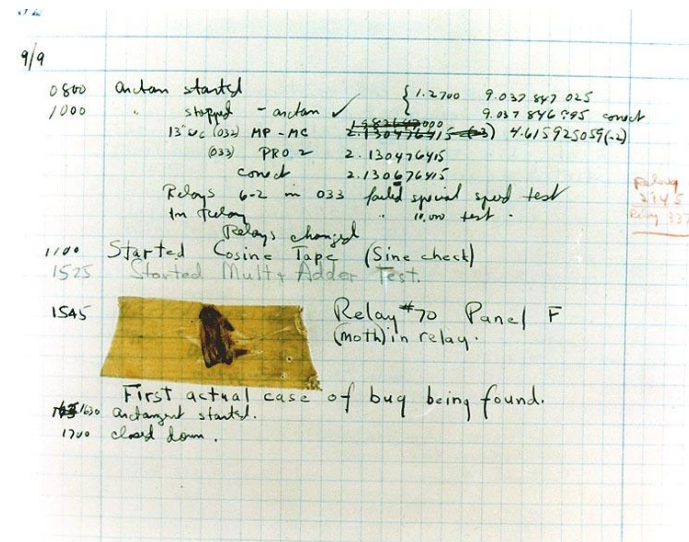 9/9
0800 Antan started { 1.2700 9.037 847 025
1000 " stopped - antan ✓ 9.037 846 995 correct
13"uc (032) MP - MC 2.130476415 (-3) 4.615925059(-2)
(033) PRO 2 2.130476415
correct 2.130676415
Relays 6-2 in 033 failed special speed test
In Relay " 10,000 test.
Relays changed
Relay
3370
1100 Started Cosine Tape (Sine check)
1525 Started Mult + Adder Test.
1545 Relay #70 Panel F
(moth) in relay.
First actual case of bug being found.
1630 antangent started.
1700 closed down.